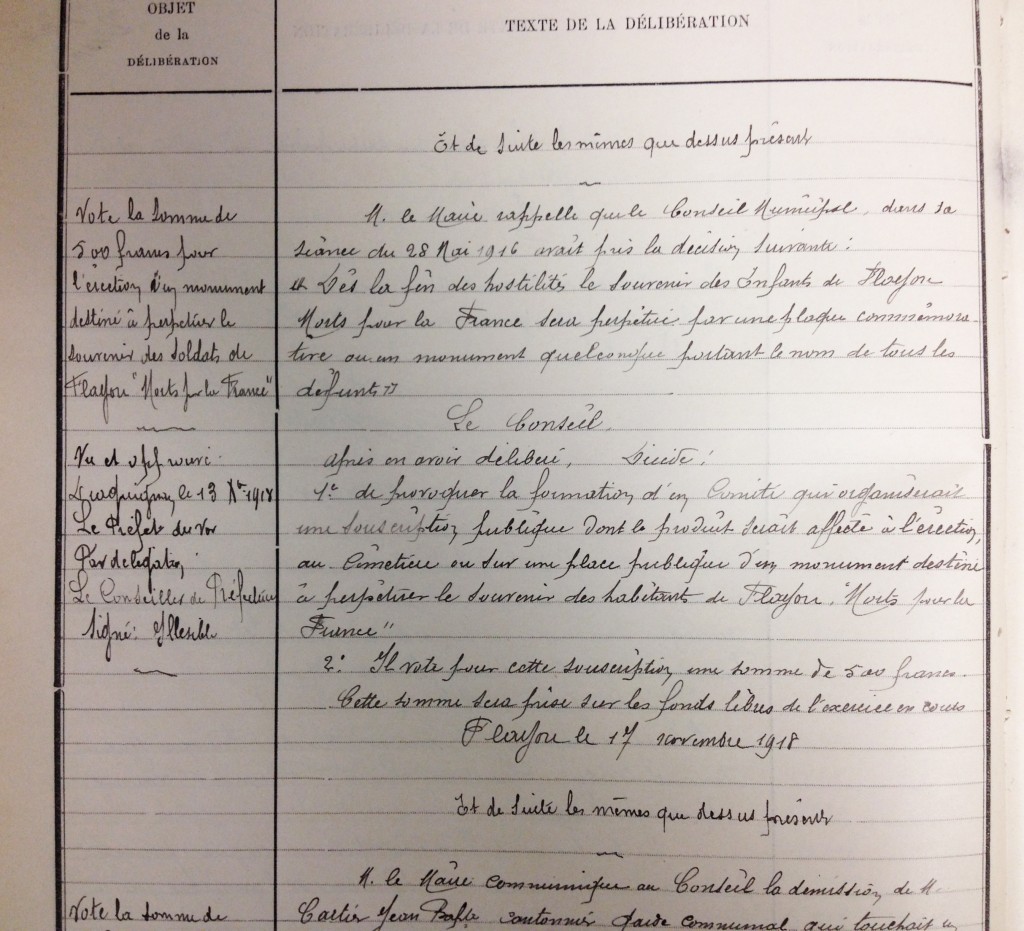 OBJET
de la
DÉLIBÉRATION
TEXTE DE LA DÉLIBÉRATION
Et de suite les mêmes que dessus présents
Vote la somme de
500 francs pour
l'érection d'un monument
destiné à perpétuer le
souvenir des soldats de
Flayosc "Morts pour la France"
Vu et approuvé.
Draguignan, le 13 Xbre 1918
Le Préfet du Var
Par délégation
Le Conseiller de Préfecture
Signé: Illisible
M. le Maire rappelle que le Conseil Municipal, dans sa
séance du 28 Mai 1916 avait pris la décision suivante:
« Dès la fin des hostilités le souvenir des Enfants de Flayosc
Morts pour la France sera perpétué par une plaque commémora
tive ou un monument quelconque portant le nom de tous les
défunts »
Le Conseil.
après en avoir délibéré, Décide:
1º de provoquer la formation d'un Comité qui organiserait
une souscription publique dont le produit serait affecté à l'érection,
au Cimetière ou sur une place publique d'un monument destiné
à perpétuer le souvenir des habitants de Flayosc. "Morts pour la
France"
2º Il vote pour cette souscription une somme de 500 francs.
Cette somme sera prise sur les fonds libres de l'exercice en cours
Flayosc le 17 novembre 1918
Et de suite les mêmes que dessus présents
M. le Maire communique au Conseil la démission de M.
Vote la somme de
Cartier Jean Bapte cantonnier garde communal qui touchait